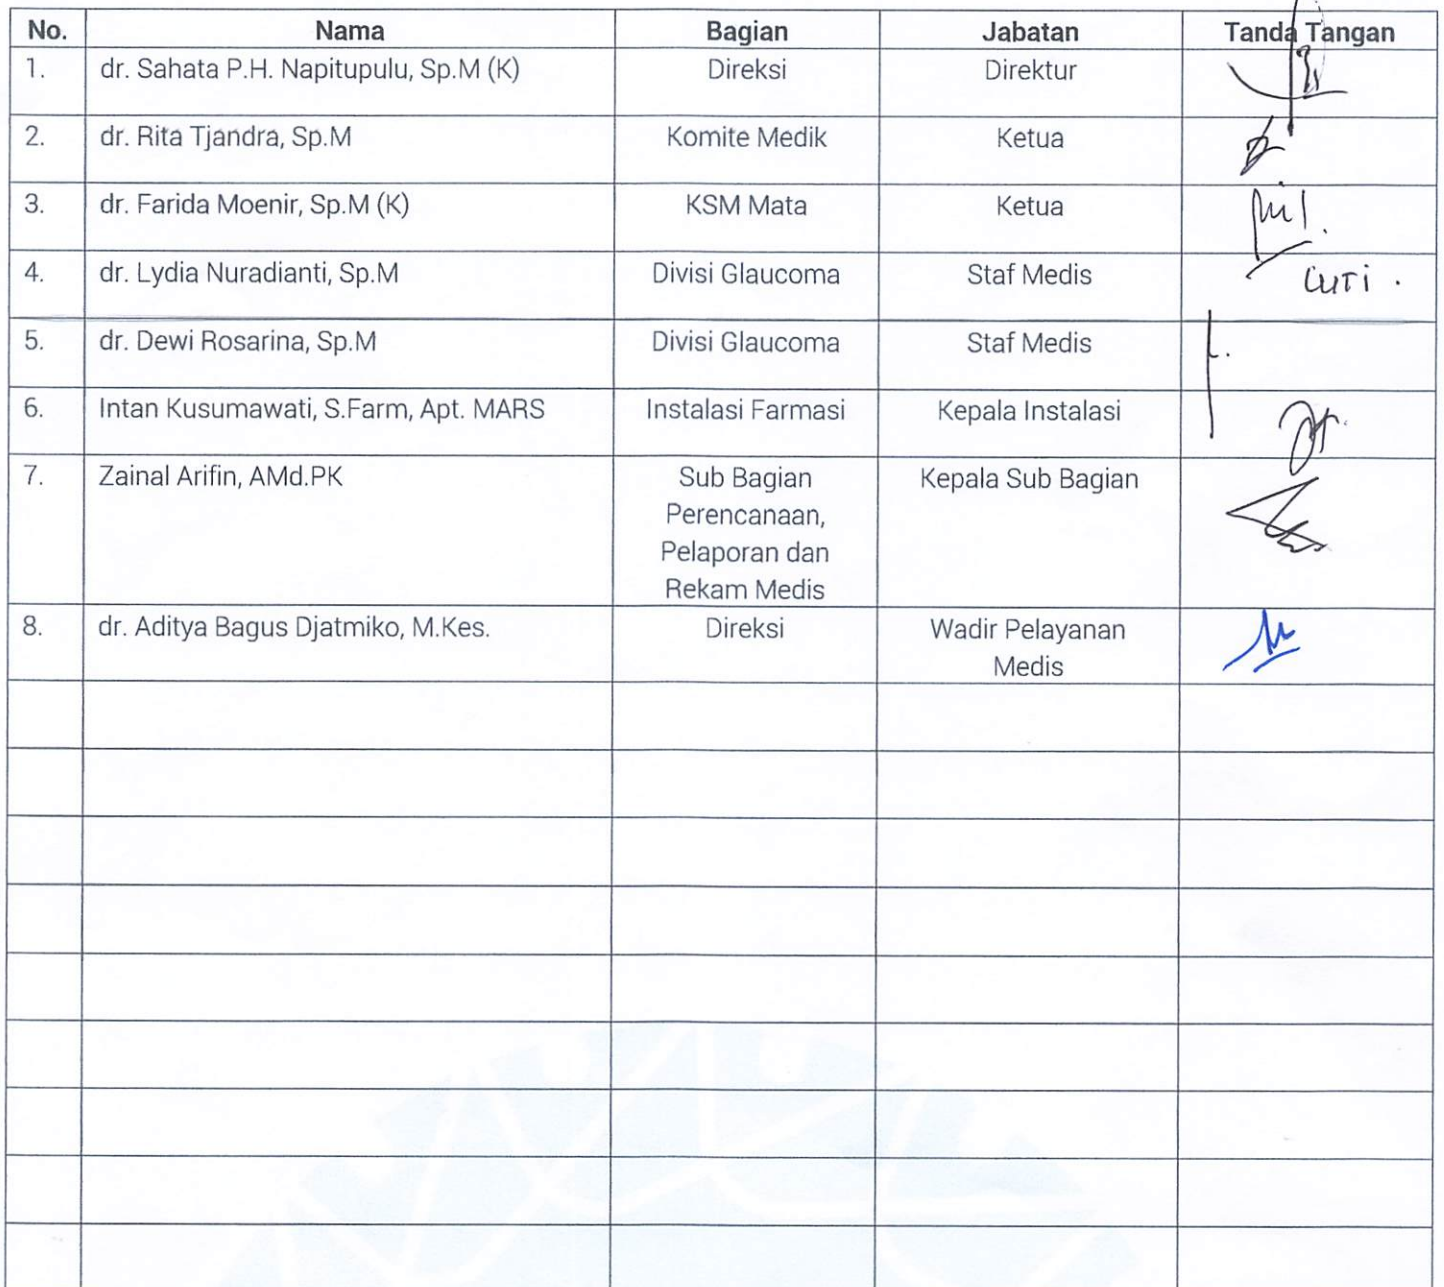 No. Nama Bagian Jabatan Tanda Tangan
1. dr. Sahata P.H. Napitupulu, Sp.M (K) Direksi Direktur
2. dr. Rita Tjandra, Sp.M Komite Medik Ketua
3. dr. Farida Moenir, Sp.M (K) KSM Mata Ketua
4. dr. Lydia Nuradianti, Sp.M Divisi Glaucoma Staf Medis CUTi .
5. dr. Dewi Rosarina, Sp.M Divisi Glaucoma Staf Medis
6. Intan Kusumawati, S.Farm, Apt. MARS Instalasi Farmasi Kepala Instalasi
7. Zainal Arifin, AMd.PK Sub Bagian Kepala Sub Bagian
Perencanaan,
Pelaporan dan
Rekam Medis
8. dr. Aditya Bagus Djatmiko, M.Kes. Direksi Wadir Pelayanan
Medis